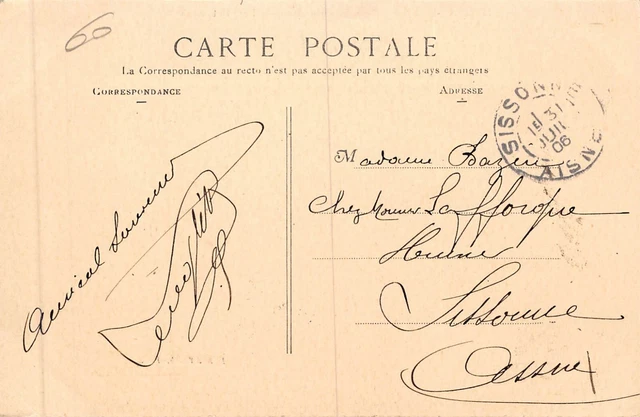 60
CARTE POSTALE
La Correspondance au recto n'est pas acceptée par tous les pays étrangers
CORRESPONDANCE
ADRESSE
SISSONNE
15 31
JUIL
06
AISNE
Amical Souvenir
Madame Bazin
Chez Monsieur Lafforgue
Sissonne
Aisne